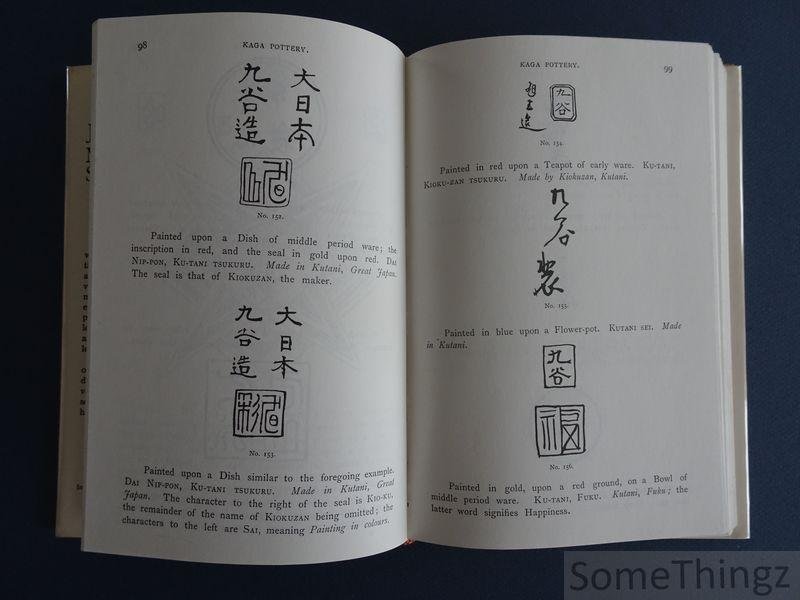 98
KAGA POTTERY.
大日本
九谷造
No. 152.
Painted upon a Dish of middle period ware; the
inscription in red, and the seal in gold upon red. DAI
NIP-PON, KU-TANI TSUKURU. Made in Kutani, Great Japan.
The seal is that of KIOKUZAN, the maker.
大日本
九谷造
No. 153.
Painted upon a Dish similar to the foregoing example.
DAI NIP-PON, KU-TANI TSUKURU. Made in Kutani, Great
Japan. The character to the right of the seal is KIO-KU,
the remainder of the name of KIOKUZAN being omitted; the
characters to the left are SAI, meaning Painting in colours.
KAGA POTTERY.
99
九谷
No. 154.
Painted in red upon a Teapot of early ware. KU-TANI,
KIOKU-ZAN TSUKURU. Made by Kiokuzan, Kutani.
九谷製
No. 155.
Painted in blue upon a Flower-pot. KUTANI SEI. Made
in Kutani.
九谷
福
No. 156.
Painted in gold, upon a red ground, on a Bowl of
middle period ware. KU-TANI, FUKU. Kutani, Fuku; the
latter word signifies Happiness.
SomeThingz